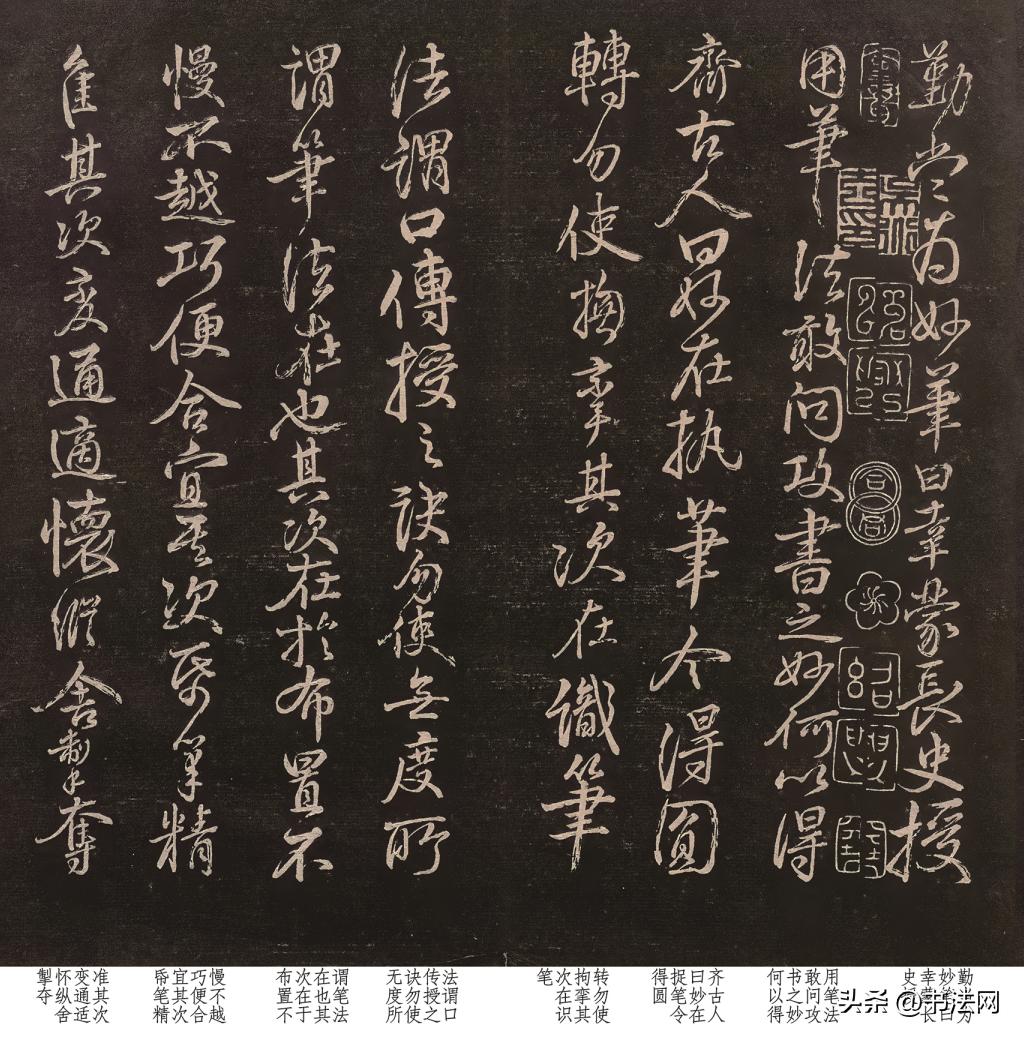 勤尝为妙笔曰幸蒙長史授
用筆法敢问攻書之妙何以得
齊古人曰妙在执筆令得圓
轉勿使拘挛其次在識筆
法謂口傳授之诀勿使无度所
謂筆法在也其次在於布置不
慢不越巧便合宜其次帋筆精
隹其次变通適懷縱舍掣奪
史
用笔法
敢问攻
书之妙
何以得
齐古人
曰妙在
捉笔令
得圆
转勿使
拘挛其
次在识
笔
法谓口
传授之
诀勿使
无度所
谓笔法
在也其
次在于
布置不
慢不越
巧便合
宜其次
帋笔精
准其次
变通适
怀纵舍
掣夺
头条 @书法网